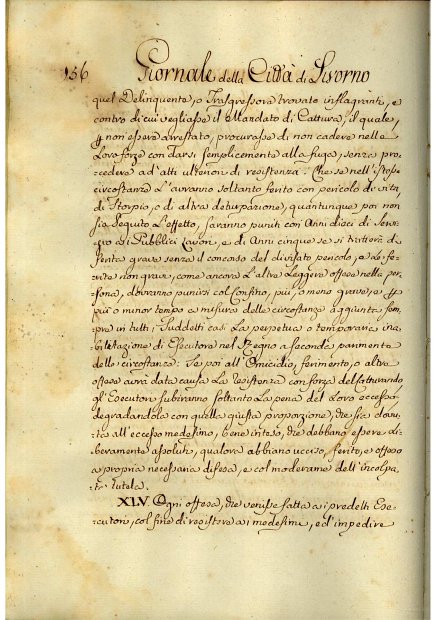 156 Giornale della Città di Livorno
quel Delinquente, o Trasgressore trovato inflagranti, e
contro di cui vegliasse il Mandato di Cattura, il quale,
non essere arrestato, procurasse di non cadere nelle
Loro forze con Darsi semplicemente alla fuga, senza pro-
cedere ad atti ulteriori di resistenza. Che se nell'istesse
circostanze L'avranno soltanto ferito con pericolo di vita,
di Storpio, o di altra deturpazione, quantunque poi non
sia seguito L'effetto, saranno puniti con Anni dieci di Ser-
vizio ai Pubblici Lavori, e di Anni cinque se si tratterà di
ferita grave senza il concorso del divisato pericolo, e Le fe-
rite non gravi, come ancora L'altre Leggiere offese nella per-
sona, dovranno punirsi col Confino, più, o meno grave, e
più o minor tempo a misura delle circostanze aggiunta sem-
pre in tutti i Suddetti casi La perpetua o temporanea ina-
bilitazione di Esecutore nel Regno a seconda parimente
delle circostanze: Se poi all'Omicidio, ferimento, o altra
offesa avrà data causa La resistenza con forza del Catturando
gl'Esecutori subiranno soltanto La pena del Loro eccesso
degradandola con quella giusta proporzione, che sia dovu-
ta all'eccesso medesimo, bene inteso, che debbano essere Li-
beramente assoluti, qualora abbiano ucciso, ferito, e offeso
a propria necessaria difesa, e col moderame dell'incolpa-
ta tutela.
XLV Ogni offesa, che venisse fatta ai predetti Ese-
cutori, col fine di resistere ai medesimi, ed'impedire